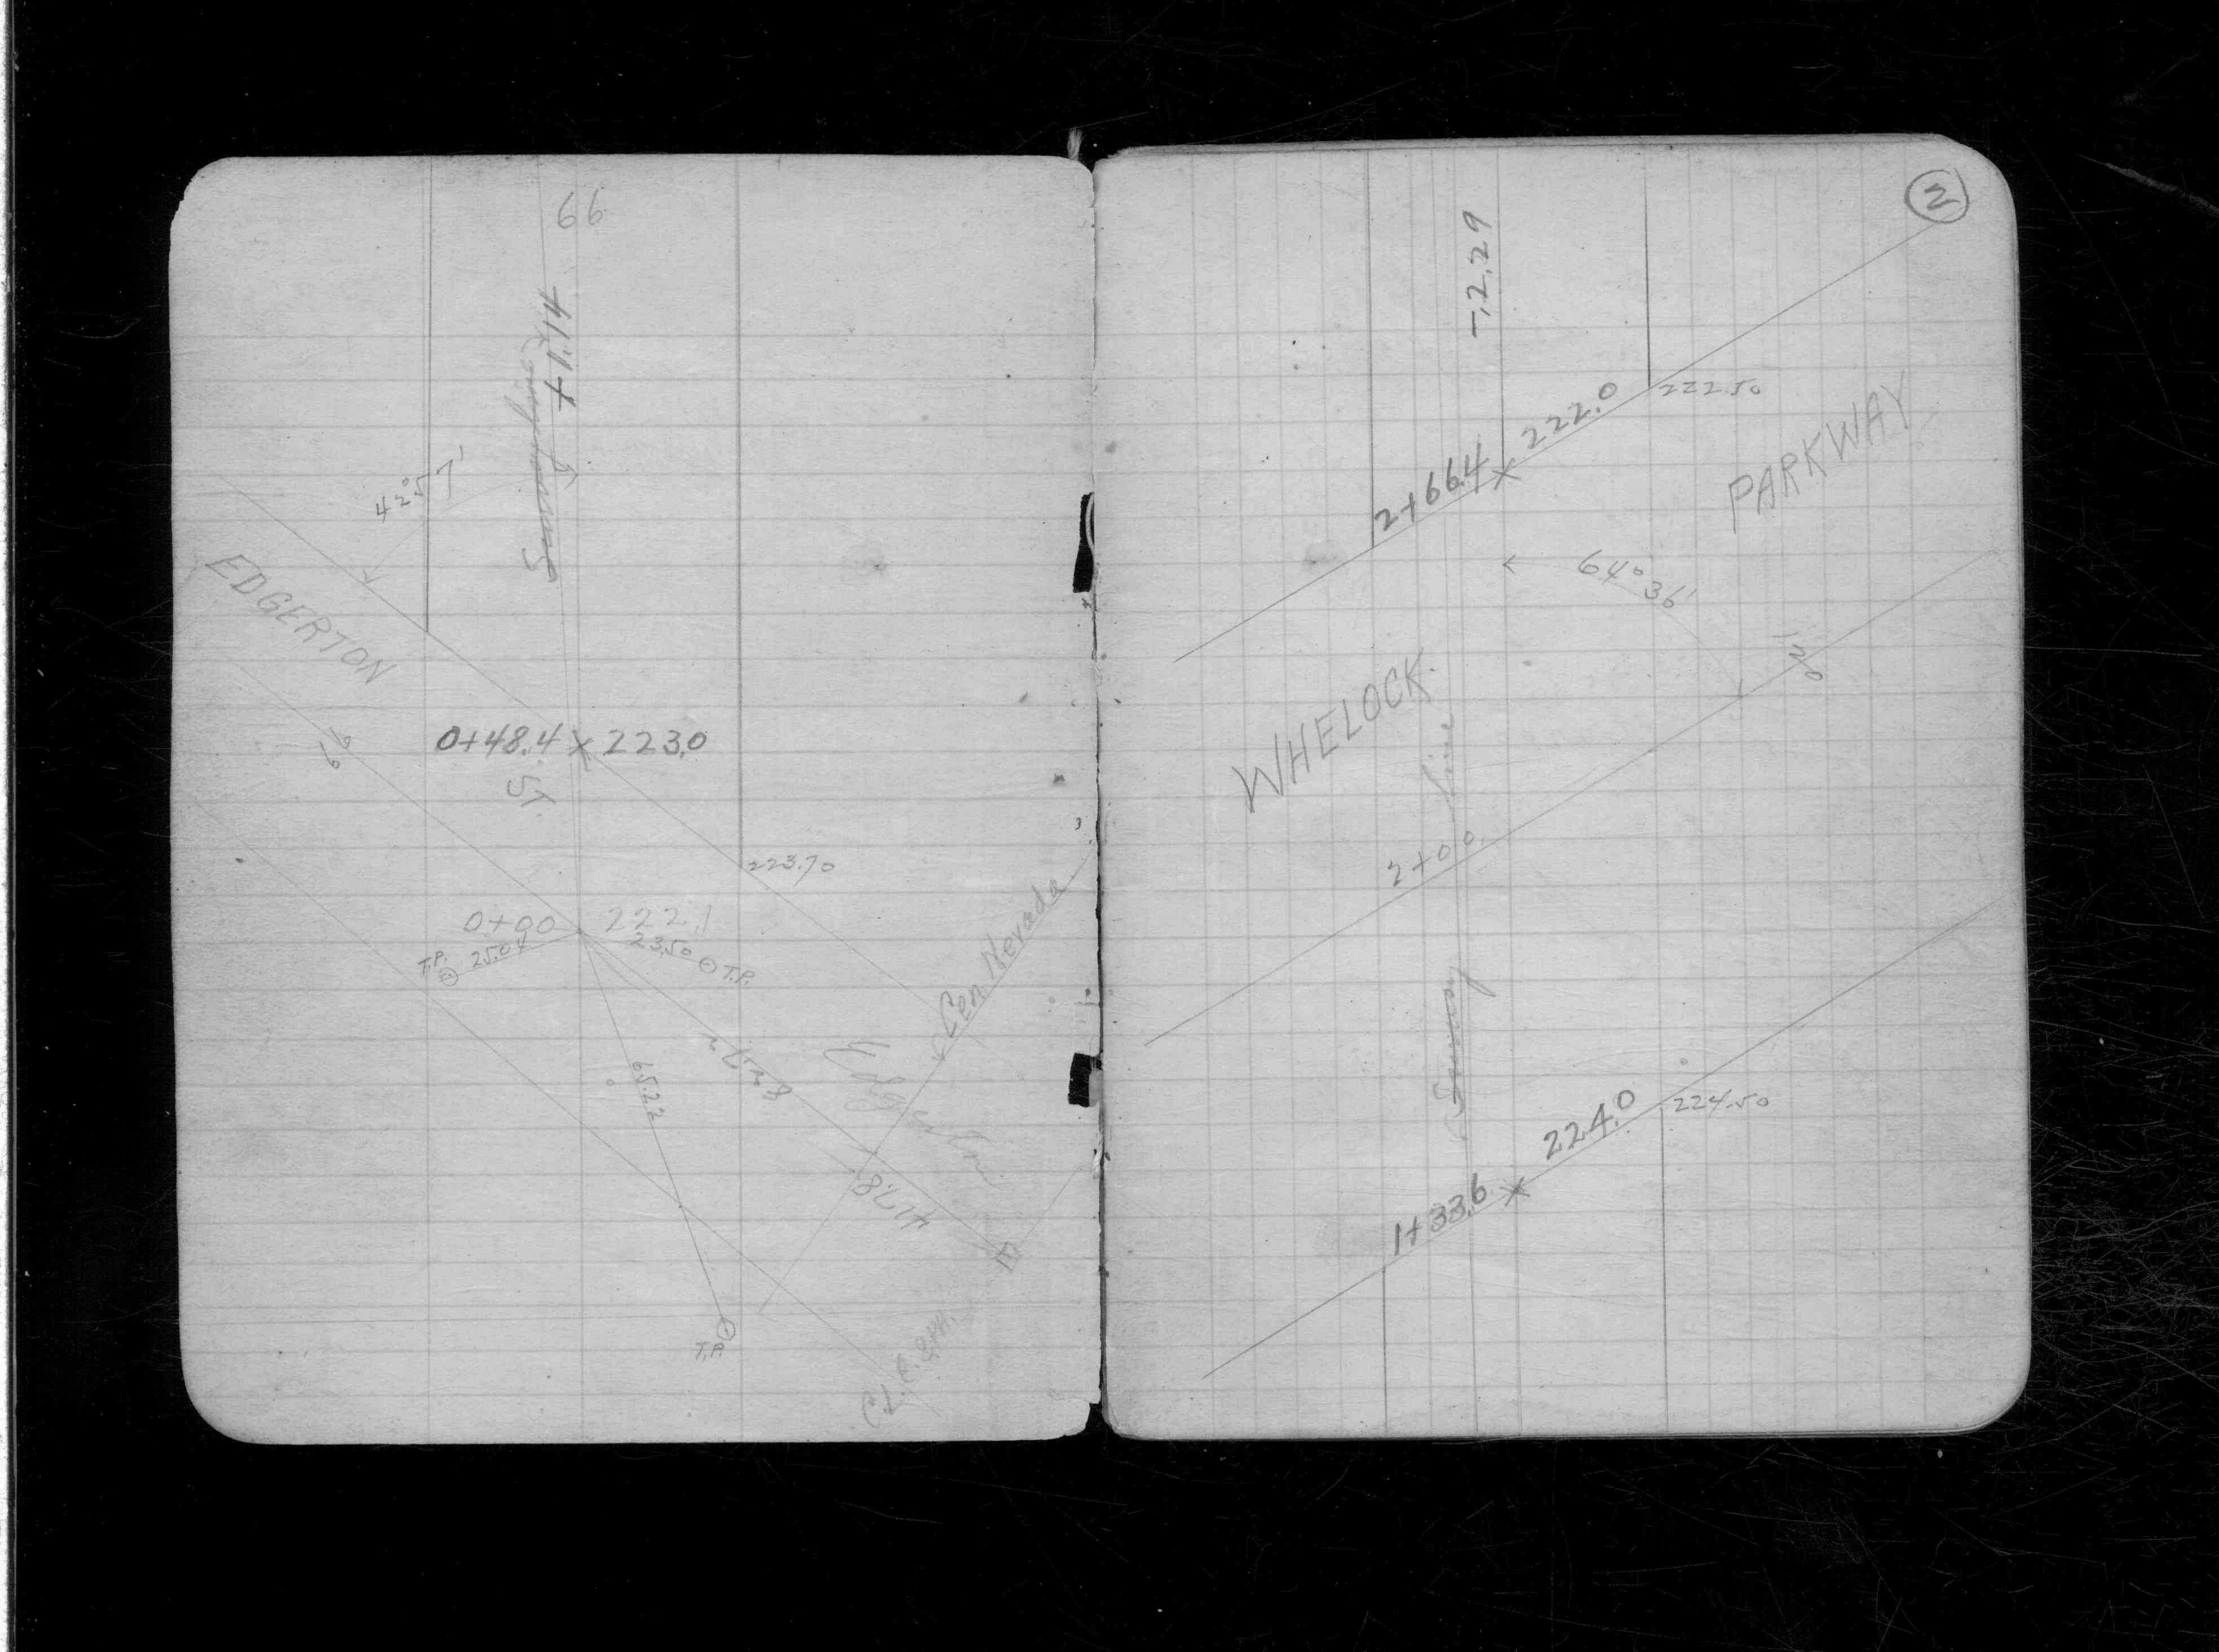 66
+1.14
42°57'
EDGERTON
66
0+48.4 223.0
ST
223.70
0+00 222.1
T.P. 25.04
23.50 T.P.
Cen. Nevada
65.22
417.8
T.P.
-2.29
222.0
222.50
2+66.4
PARKWAY
64°36'
WHELOCK
line
2+00
Survey
224.0
224.50
1+33.6